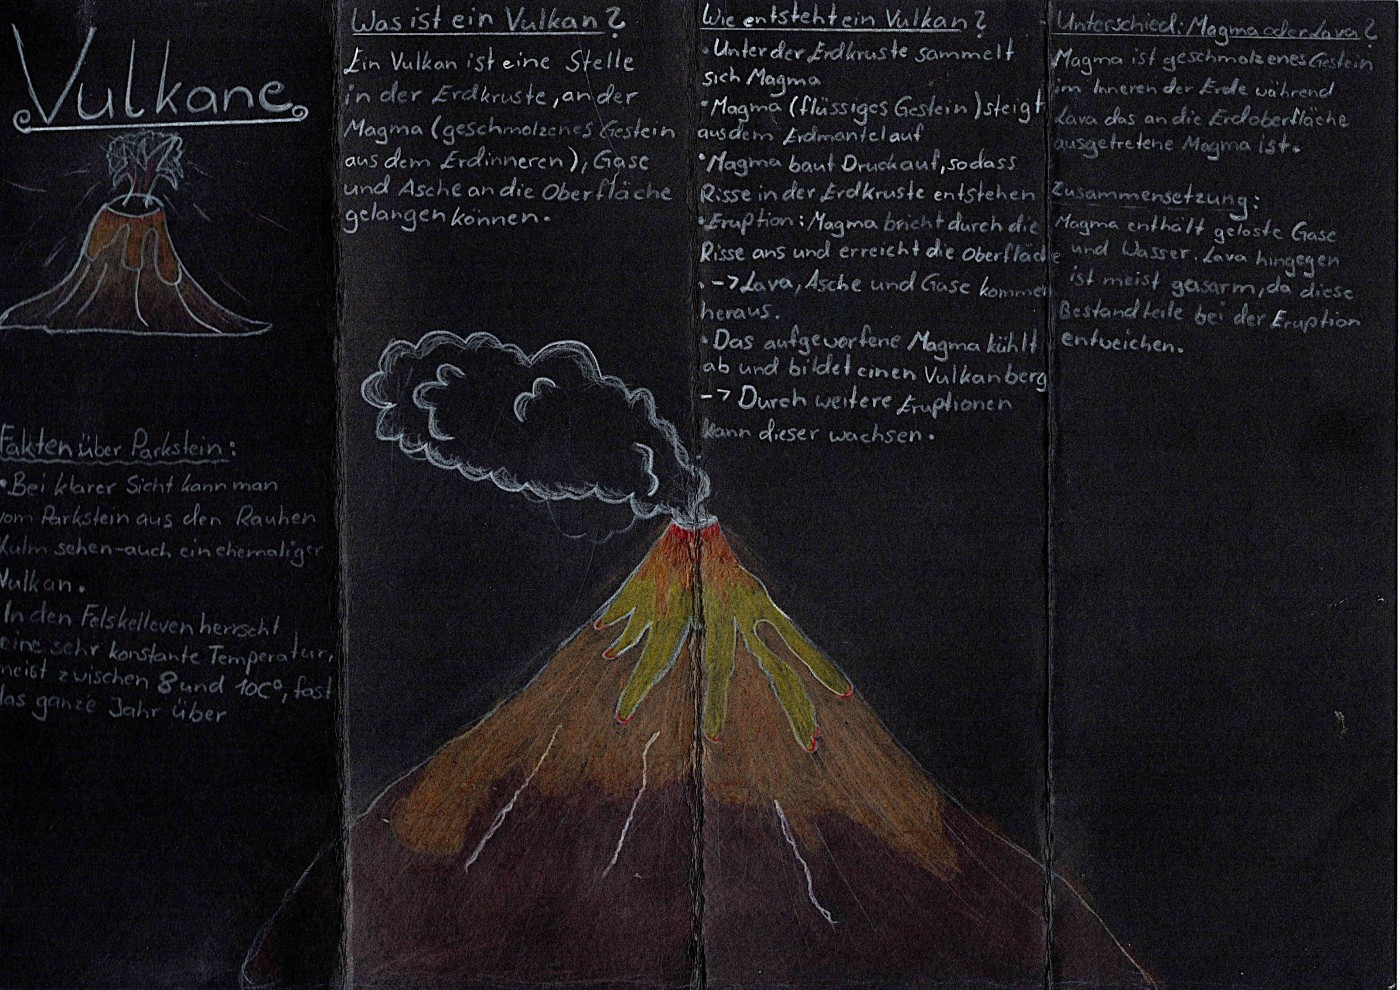 Vulkane
Fakten über Parkstein:
• Bei klarer Sicht kann man
vom Parkstein aus den Rauhen
Kulm sehen - auch ein ehemaliger
Vulkan.
In den Felskellern herrscht
eine sehr konstante Temperatur,
meist zwischen 8 und 10C°, fast
das ganze Jahr über
Was ist ein Vulkan?
Ein Vulkan ist eine Stelle
in der Erdkruste, an der
Magma (geschmolzenes Gestein
aus dem Erdinneren), Gase
und Asche an die Oberfläche
gelangen können.
Wie entsteht ein Vulkan?
• Unter der Erdkruste sammelt
sich Magma
• Magma (flüssiges Gestein) steigt
aus dem Erdmantel auf
• Magma baut Druck auf, sodass
Risse in der Erdkruste entstehen
• Eruption: Magma bricht durch die
Risse ans und erreicht die Oberfläche
. -> Lava, Asche und Gase kommen
heraus.
• Das aufgeworfene Magma kühlt
ab und bildet einen Vulkanberg
-> Durch weitere Eruptionen
kann dieser wachsen.
Unterschied: Magma oder Lava?
Magma ist geschmolzenes Gestein
im Inneren der Erde während
Lava das an die Erdoberfläche
ausgetretene Magma ist.
Zusammensetzung:
Magma enthält gelöste Gase
und Wasser. Lava hingegen
ist meist gasarm, da diese
Bestandteile bei der Eruption
entweichen.